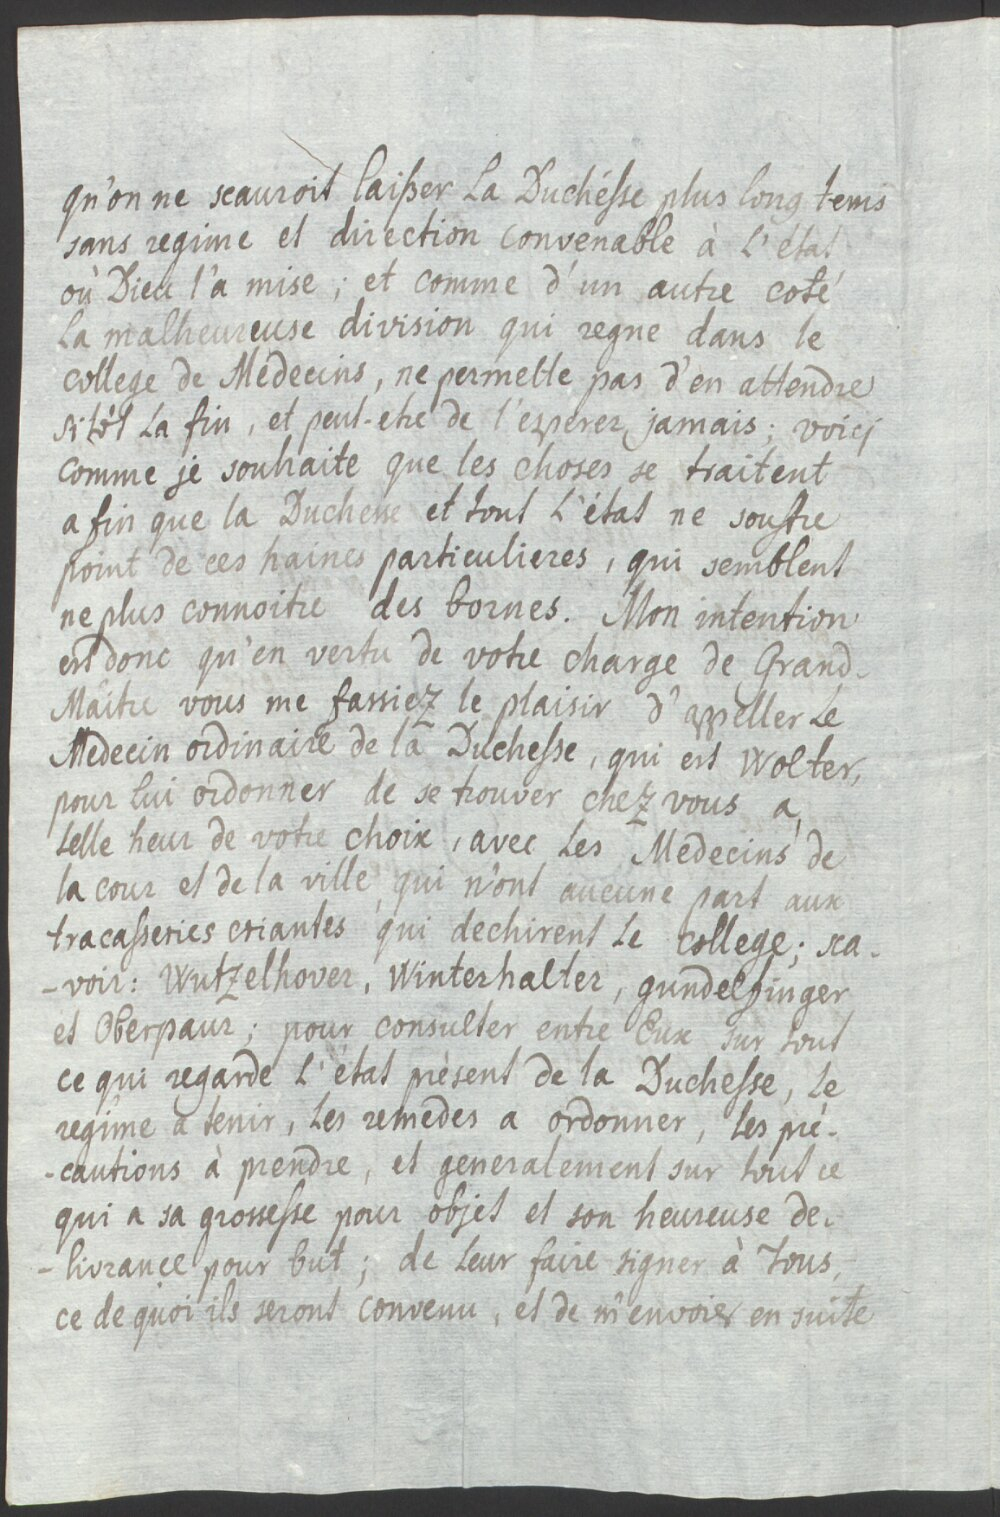 qu'on ne scauroit laisser La Duchésse plus long tems
sans regime et direction convenable à L'état
où Dieu l'a mise; et comme d'un autre coté
La malheureuse division qui regne dans le
college de Médecins, ne permette pas d'en attendre
sitôt La fin, et peut-etre de l'esperer jamais; voicj
comme je souhaite que les choses se traitent
afin que la Duchesse et tout L'état ne souffre
point de ces haines particulieres, qui semblent
ne plus connoitre des bornes. Mon intention
est donc qu'en vertu de votre charge de Grand-
Maitre vous me fassiez le plaisir d'appeller Le
Medecin ordinaire de la Duchesse, qui est Wolter,
pour Lui ordonner de se trouver chez vous a
telle heur de votre choix, avec Les Medecins de
la cour et de la ville, qui n'ont aucune part aux
tracasseries criantes qui dechirent Le college; sca-
-voir: Wutzelhover, Winterhalter, gundelfinger
et Oberpaur; pour consulter entre Eux sur tout
ce qui regarde L'état présent de la Duchesse, Le
regime a tenir, Les remedes a ordonner, Les pré-
-cautions à prendre, et generalement sur tout ce
qui a sa grossesse pour objet et son heureuse de-
-livrance pour but; de Leur faire signer à Tous,
ce de quoi ils seront convenu, et de m'envoier en suite